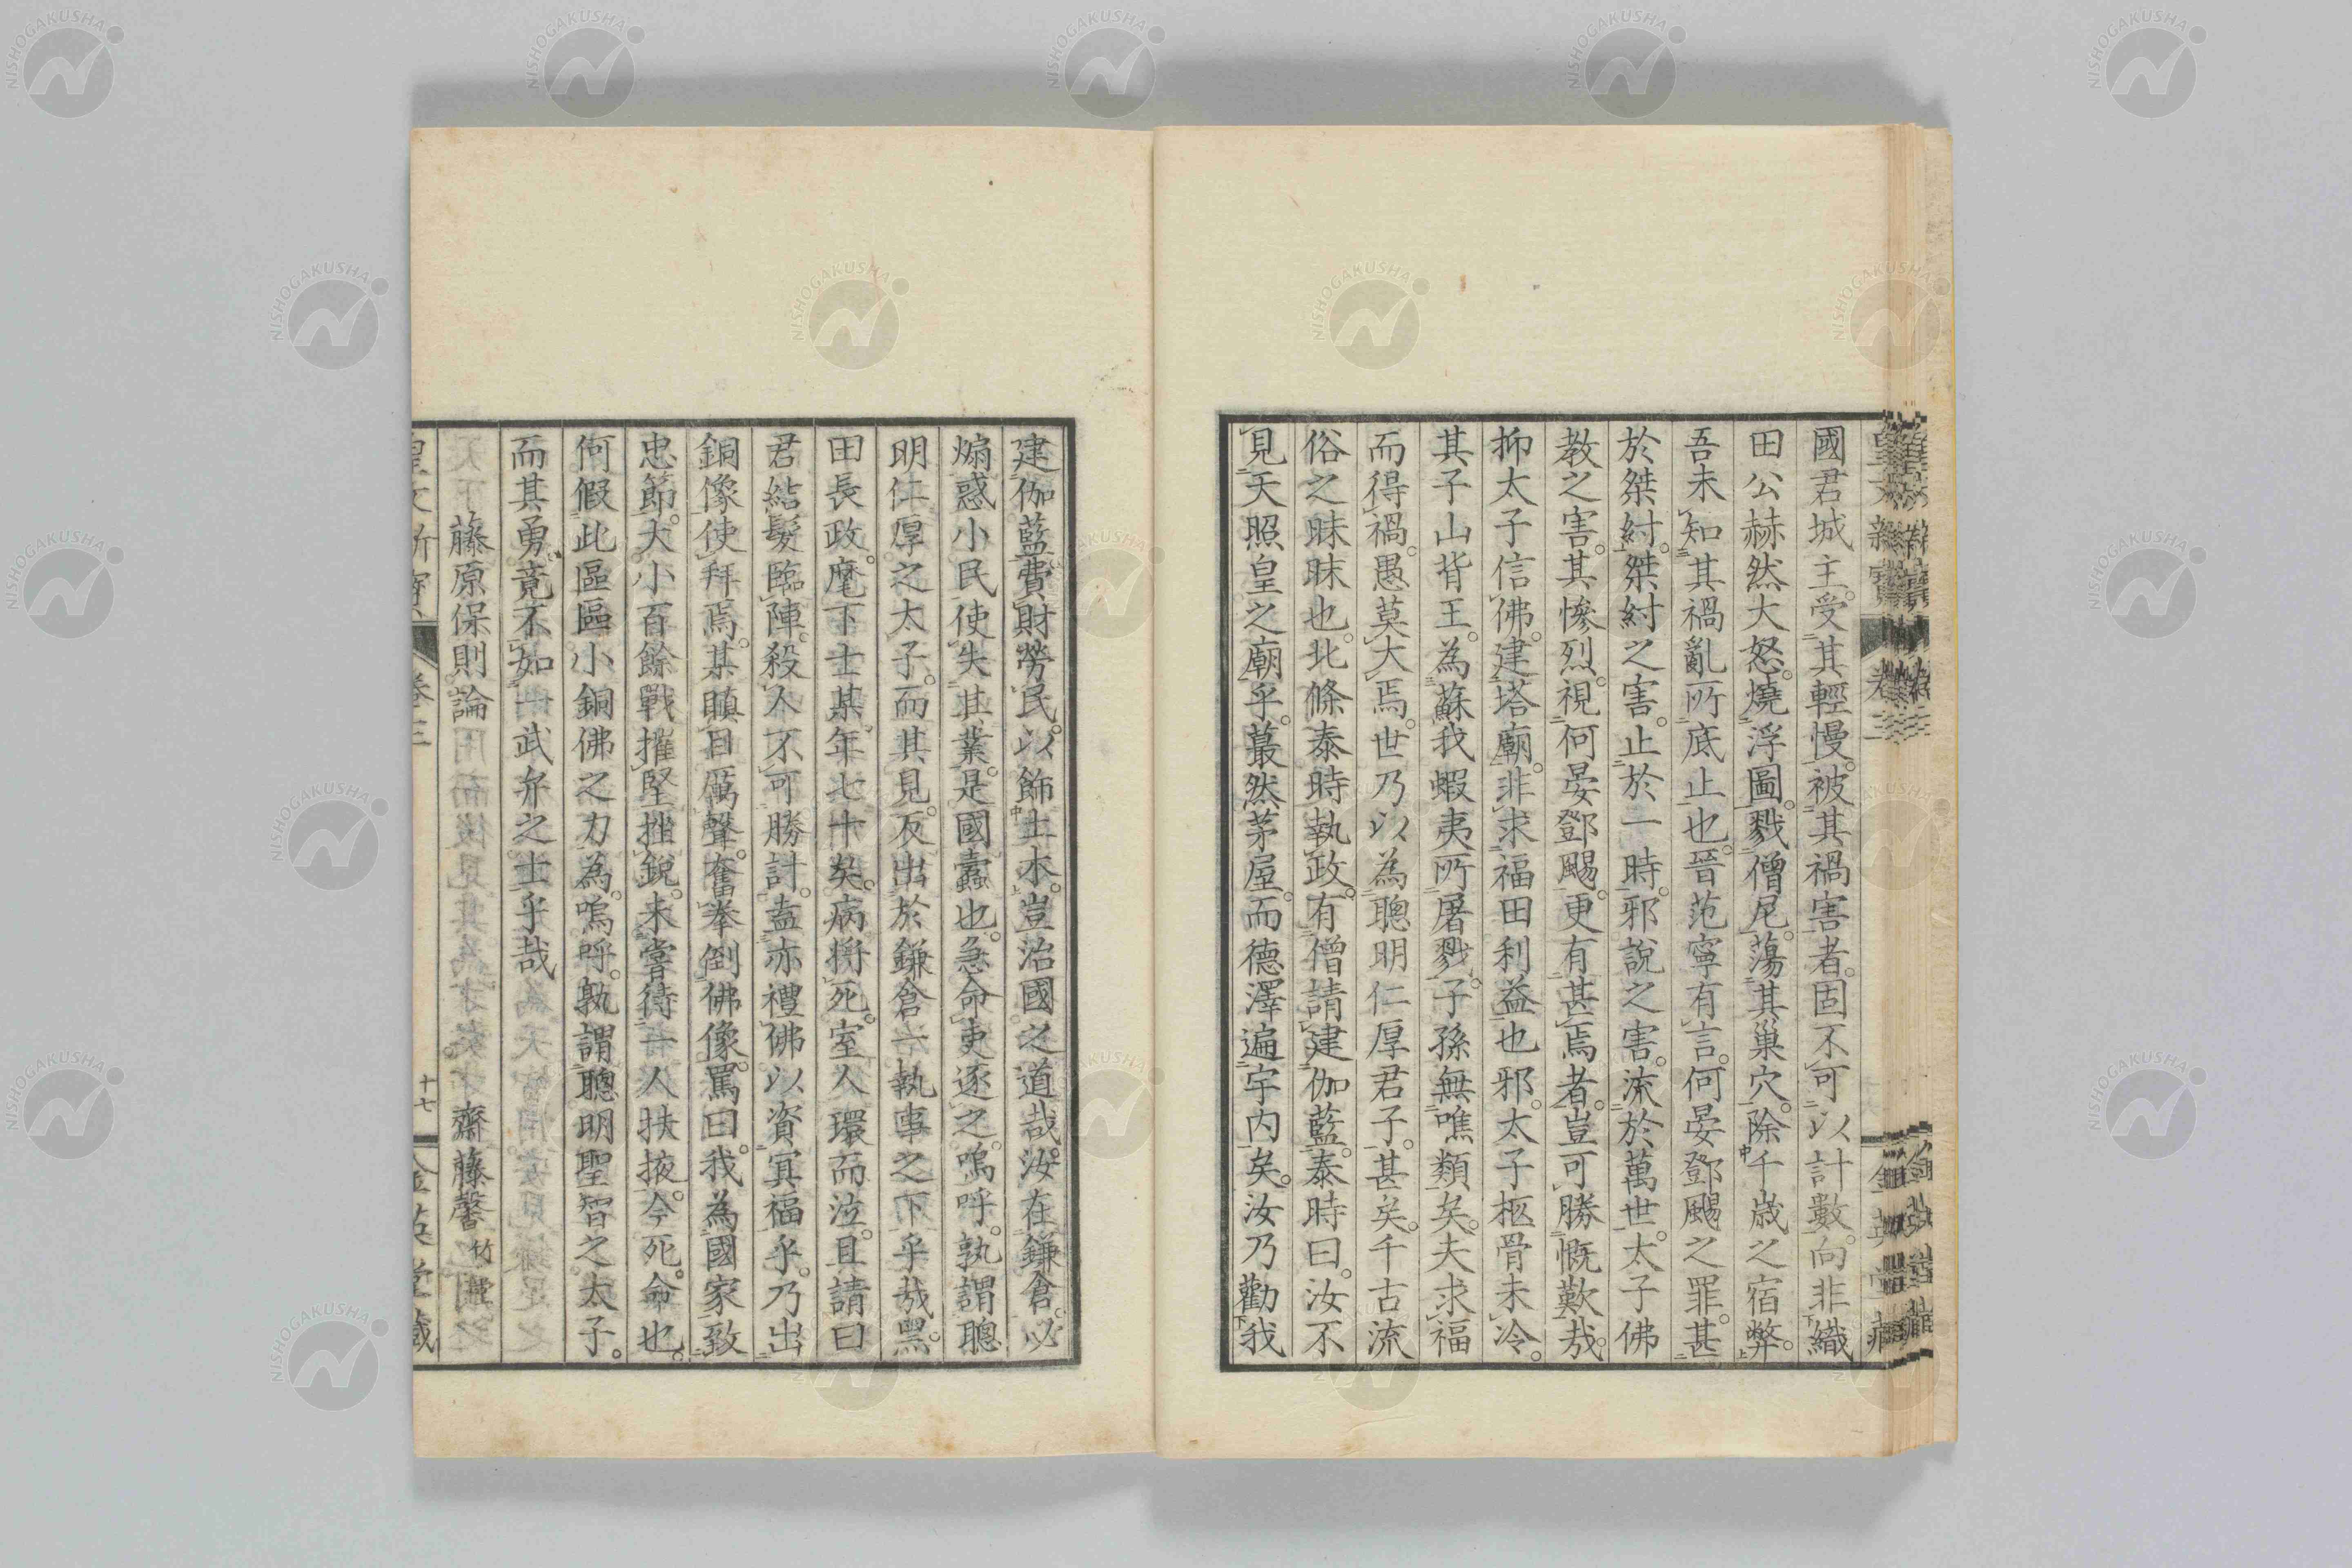 國君城主。受其輕慢。被其禍害者。固不可以計數。向非織
田公赫然大怒。燒浮圖。戮僧尼。蕩其巢穴。除千歲之宿弊。
吾未知其禍亂所底止也。晉范寧有言。何晏鄧颺之罪。甚
於桀紂。桀紂之害。止於一時。邪說之害。流於萬世。太子佛
教之害。其慘烈。視何晏鄧颺。更有甚焉者。豈可勝慨歎哉。
抑太子信佛。建塔廟。非求福田利益也邪。太子柩骨未冷。
其子山背王。為蘇我蝦夷所屠戮。子孫無噍類矣。夫求福
而得禍。愚莫大焉。世乃以為聰明仁厚君子。甚矣。千古流
俗之昧昧也。北條泰時執政。有僧請建伽藍。泰時曰。汝不
見天照皇之廟乎。蕞然茅屋。而德澤遍宇內矣。汝乃勸我
建伽藍。費財勞民。以飾土木。豈治國之道哉。汝在鎌倉。必
煽惑小民。使失莊業。是國蠹也。急命吏逐之。嗚呼。孰謂聰
明仁厚之太子。而其見。反出於鎌倉一執事之下乎哉。黑
田長政。麾下士某。年七十矣。病將死。室人環而泣。且請曰
君結髮臨陣。殺人不可勝計。盍亦禮佛以資冥福乎。乃出
銅像。使拜焉。某瞋目厲聲。奮拳倒佛像。罵曰。我為國家致
忠節。大小百餘戰。摧堅挫銳。未嘗待一人扶掖。今死。命也。
何假此區區小銅佛之力為。嗚呼。孰謂聰明聖智之太子。
而其勇。竟不如一武弁之士乎哉
藤原保則論 齋藤馨 竹堂
皇文新寶 卷三 十七 金英堂藏
NISHOGAKUSHA